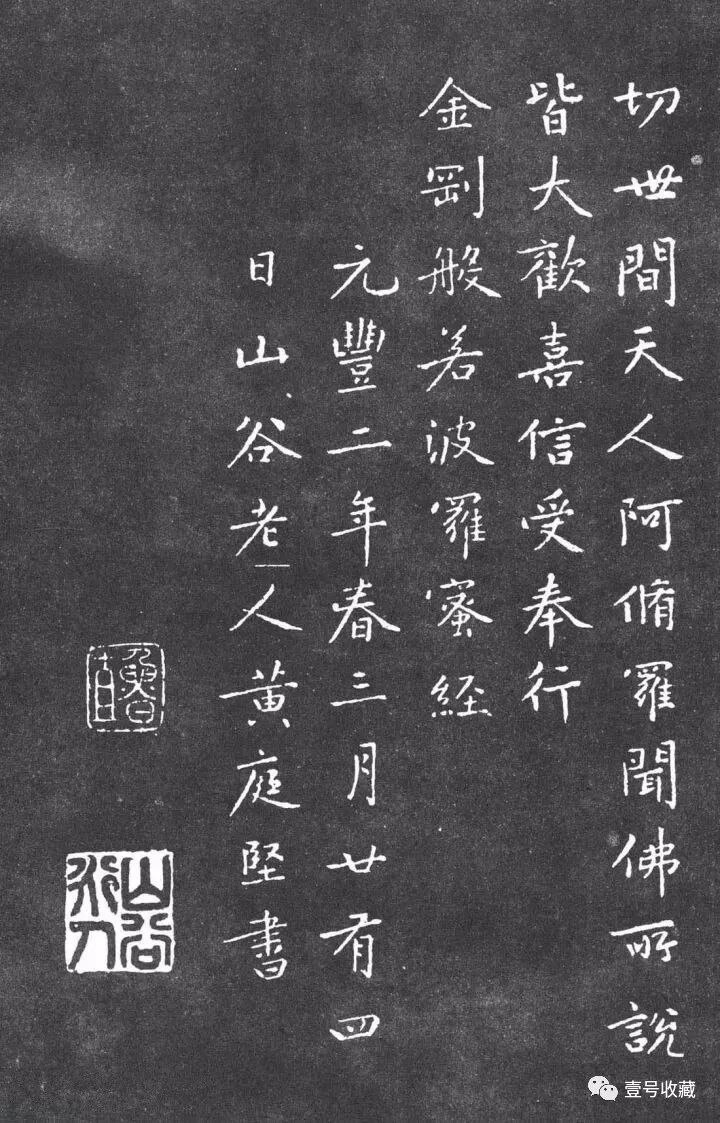 切世間天人阿脩羅聞佛所說
皆大歡喜信受奉行
金剛般若波羅蜜経
元豐二年春三月廿有四
日山谷老人黄庭堅書
山谷
壹号收藏